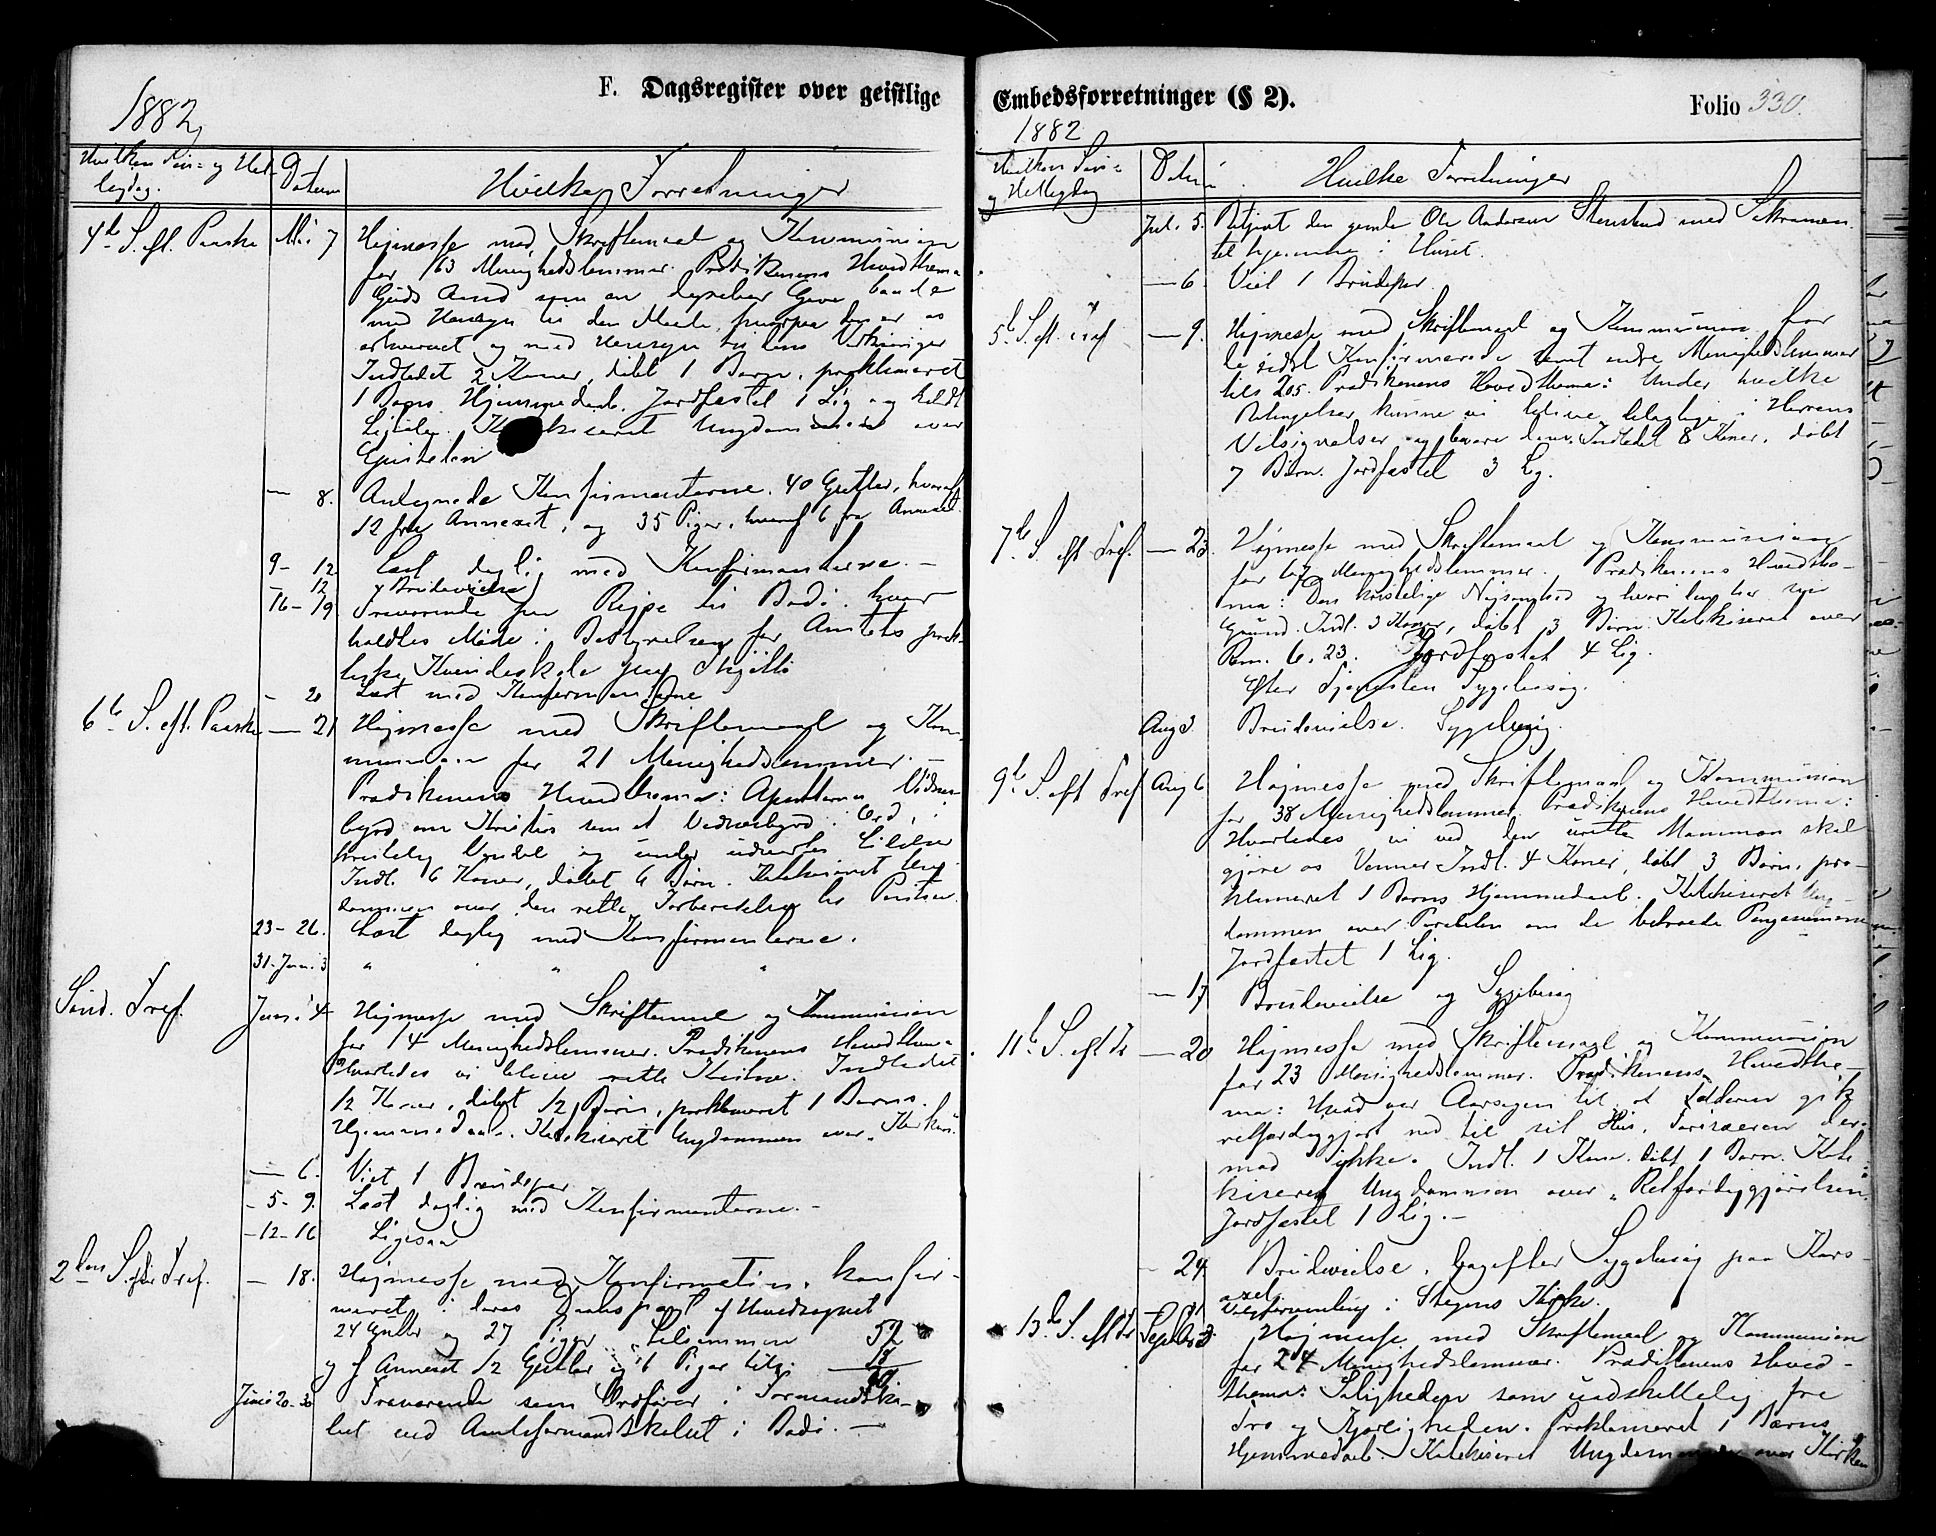 F. Dagsregister over geistlige
1882
Hvilken Søn- og Hel-
ligdag. Datum Hvilke Forretninger
4de S. eft. Paaske Mai 7 Højmesse med Skriftemaal og Kommunion
for 163 Menighedslemmer. Prædikenens Hovedthema
Guds Aand som en Gave baade
med Hensyn til den Maade, hvorpaa den er os
erhvervet og med Hensyn til dens Virkninger
Indledet 2 Koner, døbt 1 Barn, proklameret
1 Barns Hjemmedaab. Jordfæstet 1 Lig og holdt
Ligtale. Ungdommen over
Epistelen
— 8. Antegnede Konfirmanterne. 40 Gutter, hvoraf
12 fra Annexet, og 35 Piger, hvoraf 6 fra Annexet
9 - 12 Læst daglig med Konfirmanterne. —
12 Brudevielse
16 - 19 Fraværende paa Rejse til Bodø, hvor
holdtes Møde i Bestyrelsen for Amtets prak-
tiske Kvindeskole paa
- 20 Læst med Konfirmanterne
6te S. eft. Paaske — 21 Højmesse med Skriftemaal og Kom-
munion for 21 Menighedslemmer. —
Prædikenens Hovedthema: Apostlernes Vidnes-
byrd om Kristus som et Vidnesbyrd i Ord, i
kristelig Vandel og under Lidelser
Indl. 6 Koner, døbet 6 Børn. Katekiseret Ung-
dommen over den rette Forberedelse til Pintsen.
23 - 26. Læst daglig med Konfirmanterne.
31 - Juni 3 " " "
Sønd. Tref. Juni 4 Højmesse med Skriftemaal og Kommunion
for 14 Menighedslemmer. Prædikenens Hovedthema
Hvorledes vi blive rette Kristne. Indledet
12 Koner, døbt 12 Børn, proklameret 1 Barns
Hjemmedaab. Katekiseret Ungdommen over
— 6. Viet 1 Brudepar
- 5 - 9. Læst daglig med Konfirmanterne. —
- 12 - 16 Ligesaa
2den S. efter Tref. — 18. Højmesse med Konfirmation, konfir-
meret i deres Daabspagt af Hovedsognet
24 Gutter og 27 Piger, tilsammen 52
og f Annexet 12 Gutter og 6 Piger tils. 18
Juni 20 - 30 Fraværende som Ordfører i Formandska-
bet ved Amtsformandskabet i Bodø. —
Embedsforretninger (§ 2).
Folio 330.
1882
Hvilken Søn-
og Helligdag Datum Hvilke Forretninger
Jul. 5. Betjent den gamle Ole Andersen Stensland med Sakramen-
tet hjemme i Huset.
— 6. Viet 1 Brudepar.
5te S. eft. Tref — 9. Højmesse med Skriftemaal og Kommunion for
de sidst Konfirmerede samt andre Menighedslemmer
tils 205. Prædikenens Hovedthema: Under hvilke
Betingelser kunne vi blive delagtige i Herrens
Velsignelser og bevare dem. Indledet 8 Koner, døbt
7 Børn. Jordfæstet 3 Lig.
7de S. eft Tref. — 23. Højmesse med Skriftemaal og Kommunion
for 67 Menighedslemmer. Prædikenens Hovedthe-
ma: Den kristelige Nøjsomhed og hvori den har sin
Grund. Indl. 3 Koner, døbt 3 Børn. Katekiseret over
Rom. 6, 23. Jordfæstet 4 Lig.
Efter Tjenesten Sygebesøg.
Aug 3 Brudevielse. Sygebesøg.
9de S. eft Tref Aug 6 Højmesse med Skriftemaal og Kommunion
for 38 Menighedslemmer. Prædikenens Hovedthema:
Hvorledes vi ved den urette Mammon skal
gjøre os Venner. Indl. 4 Koner, døbt 3 Børn, pro-
klameret 1 Barns Hjemmedaab. Katekiseret Ung-
dommen over Parabelen om de betroede Penge
Jordfæstet 1 Lig.
— 17 Brudevielse og Sygebesøg
11te S. eft Tr — 20 Højmesse med Skriftemaal og Kommunion
for 23 Menighedslemmer. Prædikenens Hovedthe-
ma: Hvad var Aarsagen til, at Tolderen gik
retfærdiggjort ned til sit Hus, Farisæeren der-
mod ikke. Indl. 1 Kone, døbt 1 Barn. Kate-
kiseret Ungdommen over Retfærdiggjørelsen.
Jordfæstet 1 Lig. —
— 24 Brudevielse, Sygebesøg paa
i Stegens Kirke.
13de S. eft Tr Septbr 3. Højmesse med Skriftemaal og Kommunion
for 24 Menighedslemmer. Prædikenens Hoved-
thema: Saligheden som uadskillelig fra
Tro og Kjærligheden. Proklameret 1 Barns
Hjemmedaab. Katekiseret Ungdommen over